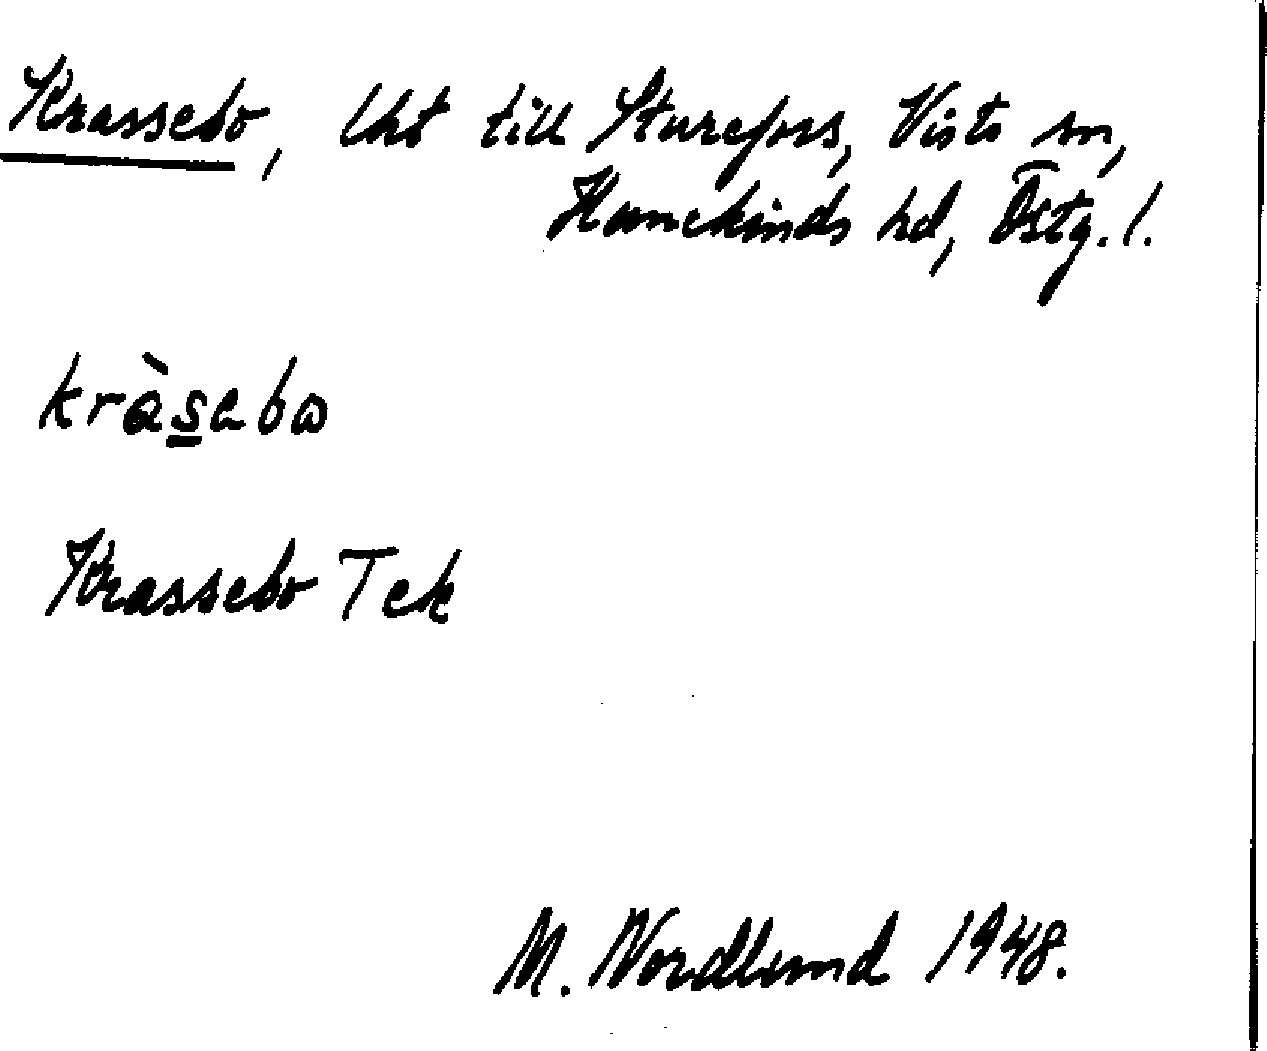 Krassebo, lht till Sturefors, Vists sn,
Hanekinds hd, Östg. l.
kràsebo
Krassebo Tek
M. Nordlund 1948.